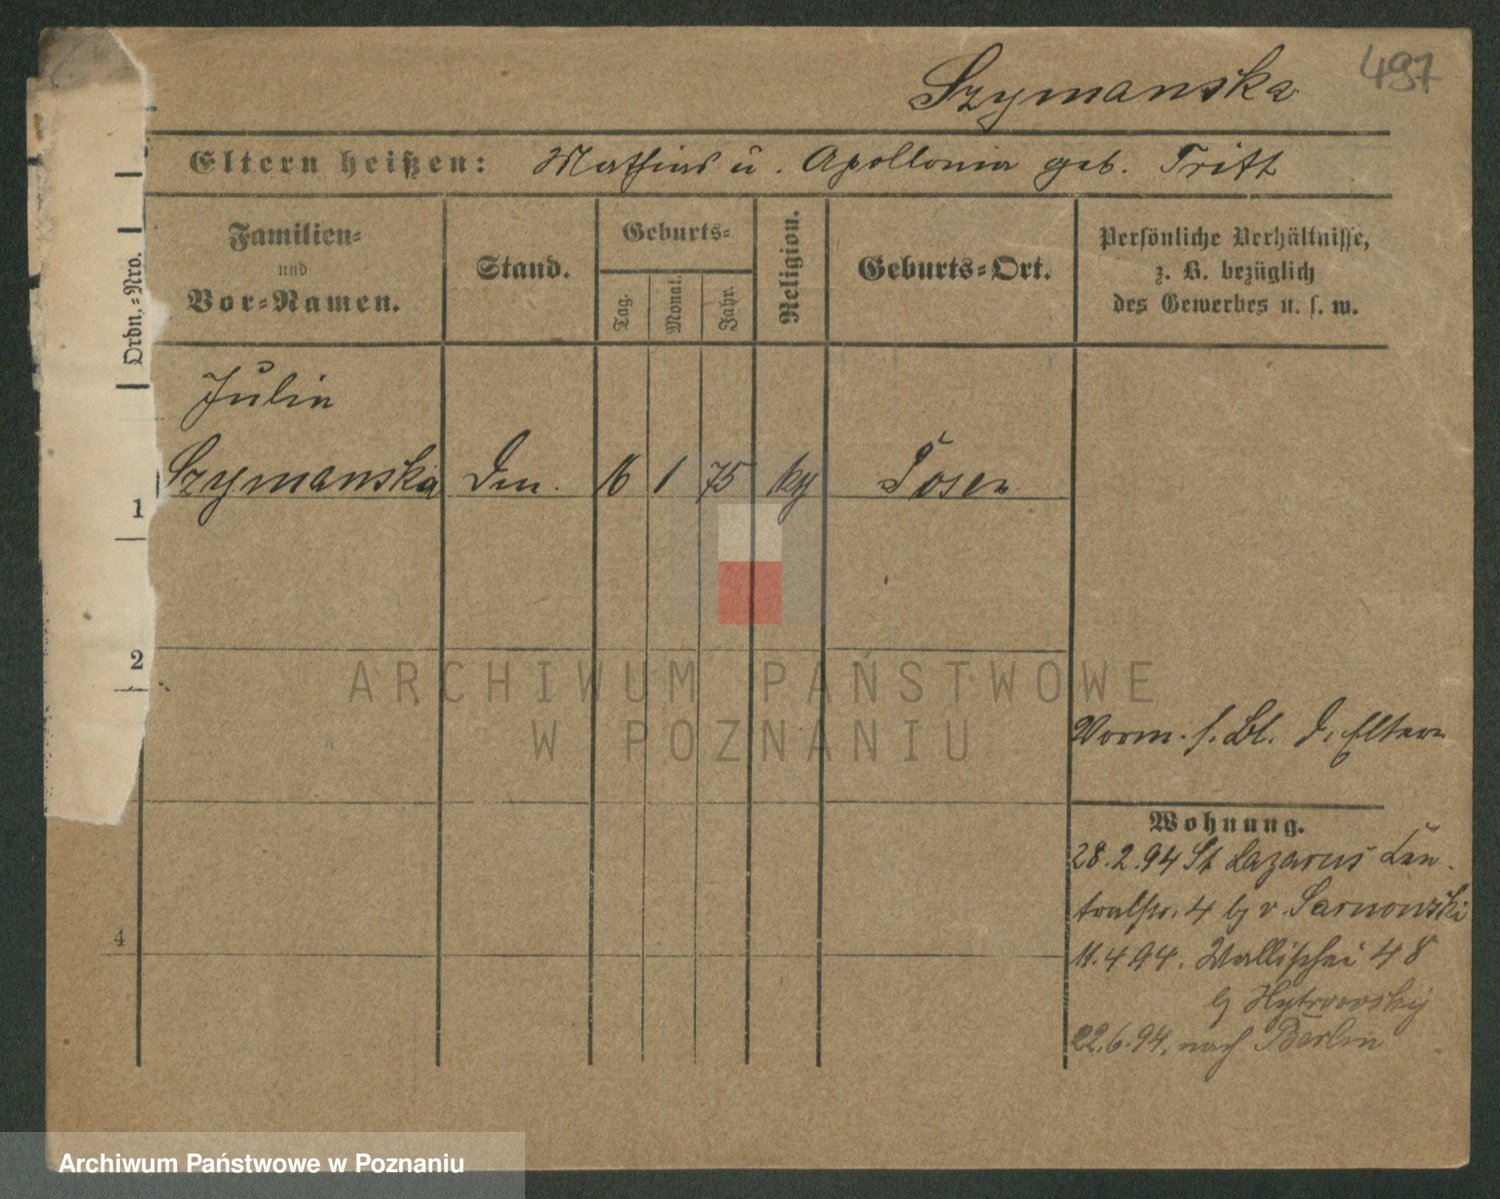 497
Szymanska
Eltern heißen: Mathias u. Apollonia geb. Tritt
Ordn.-Nro.
Familien-
und
Vor-Namen.
Stand.
Geburts-
Tag.
Monat.
Jahr.
Religion.
Geburts-Ort.
Persönliche Verhältnisse,
z. B. bezüglich
des Gewerbes u. s. w.
Julia
1 Szymanska 16 1 75 Posen
2
Vorm. s. Bl. d. Eltern
Wohnung.
28.2.94 St Lazarus Cen
tralstr. 4 bj v. Sarnowski
4
11.4.94. Wallischei 48
bj
22.6.94. nach Berlin
ARCHIWUM PAŃSTWOWE
W POZNANIU
Archiwum Państwowe w Poznaniu